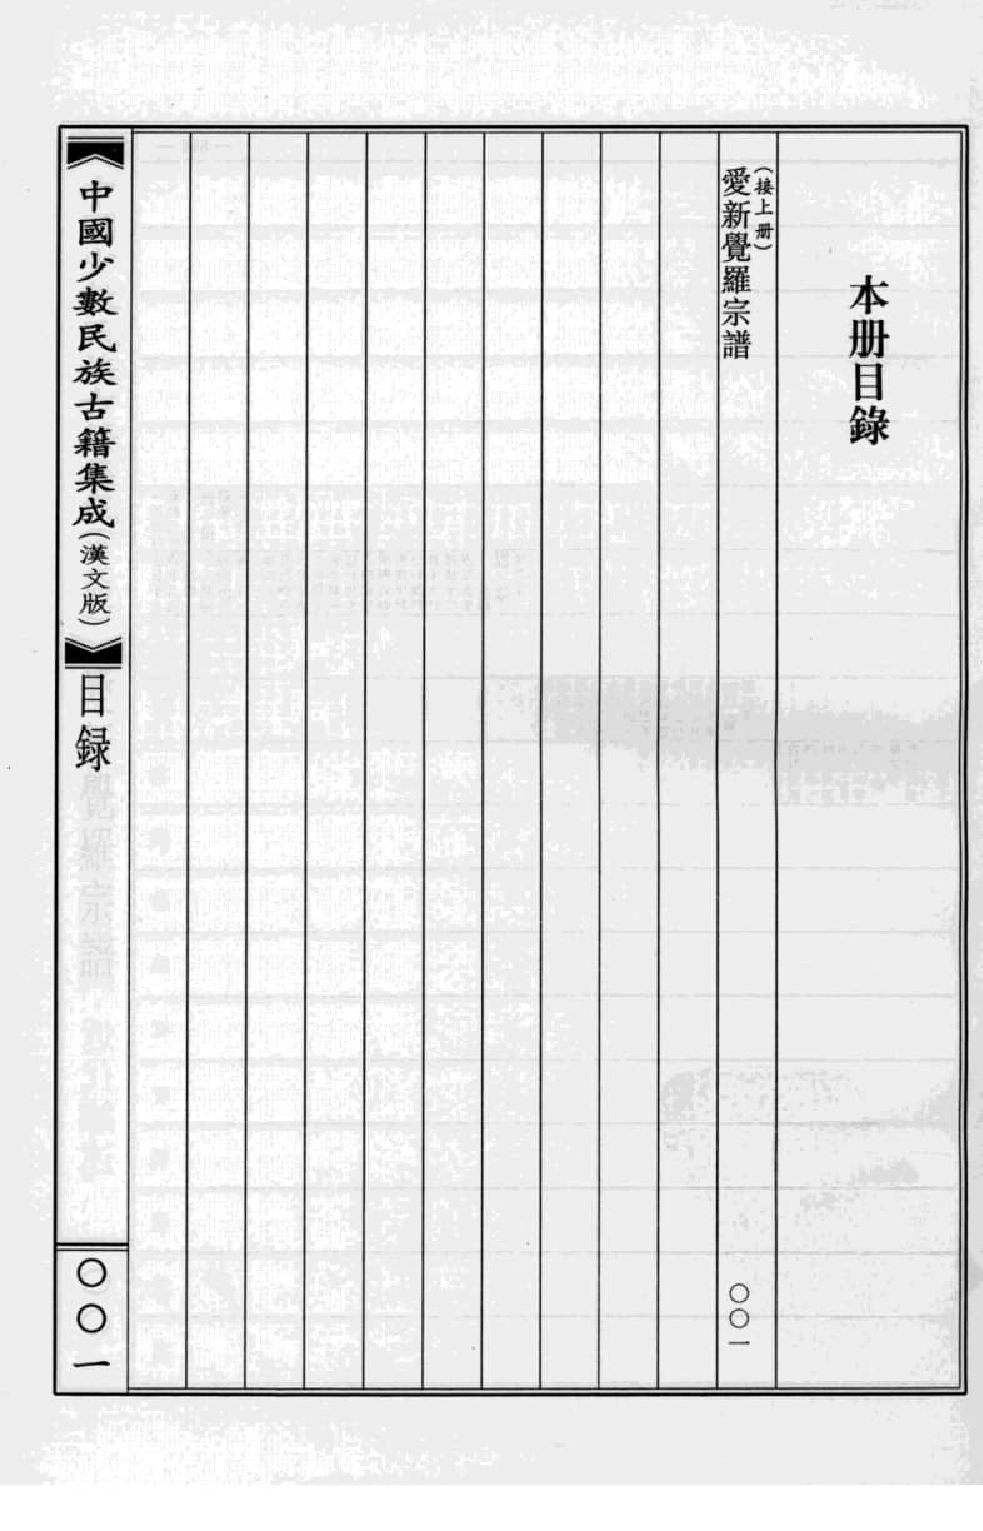 本册目錄
（接上册）
愛新覺羅宗譜
〇〇一
中國少數民族古籍集成（漢文版）
目録
〇〇一